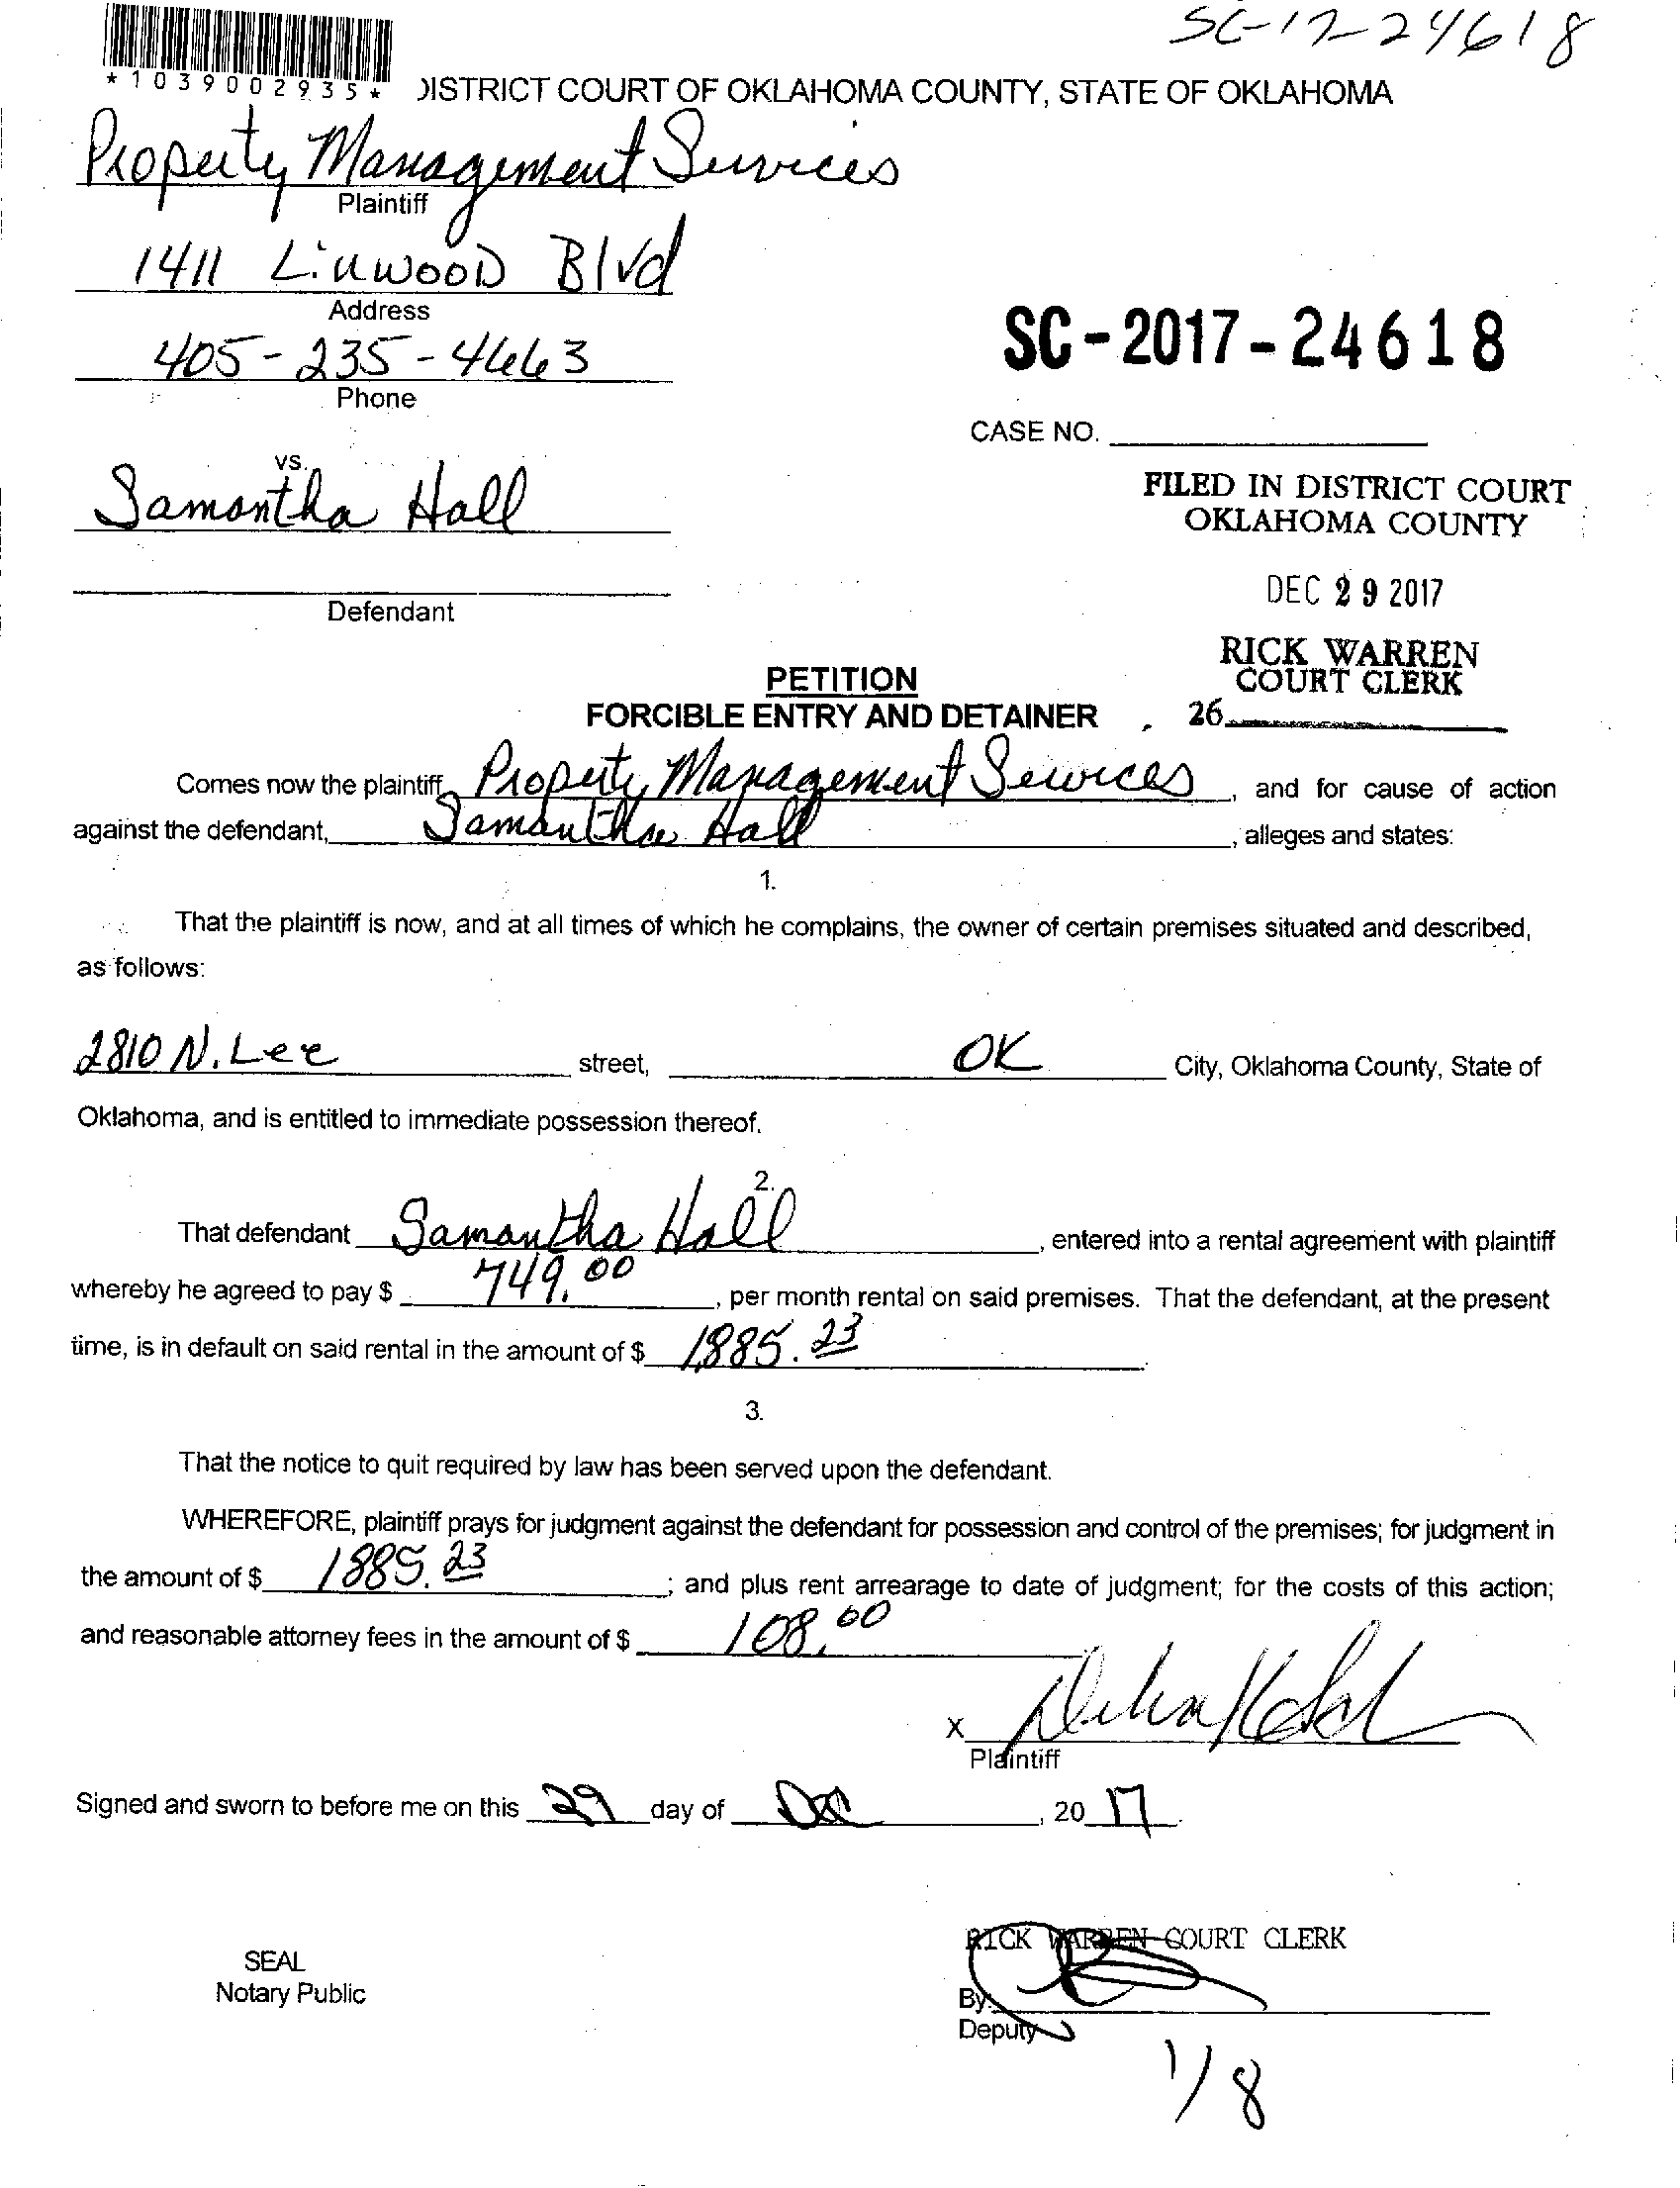 SC-17-24618
*1039002935*
DISTRICT COURT OF OKLAHOMA COUNTY, STATE OF OKLAHOMA
Property Management Services
Plaintiff
1411 Linwood Blvd
Address
405-235-4663
Phone
SC-2017-24618
CASE NO.
vs.
Samantha Hall
Defendant
FILED IN DISTRICT COURT
OKLAHOMA COUNTY
DEC 29 2017
RICK WARREN
COURT CLERK
26
PETITION
FORCIBLE ENTRY AND DETAINER
Comes now the plaintiff, Property Management Services, and for cause of action
against the defendant, Samantha Hall, alleges and states:
1.
That the plaintiff is now, and at all times of which he complains, the owner of certain premises situated and described,
as follows:
2810 N. Lee street, OK City, Oklahoma County, State of
Oklahoma, and is entitled to immediate possession thereof.
2.
That defendant Samantha Hall, entered into a rental agreement with plaintiff
whereby he agreed to pay $ 749.00, per month rental on said premises. That the defendant, at the present
time, is in default on said rental in the amount of $ 1,885.23.
3.
That the notice to quit required by law has been served upon the defendant.
WHEREFORE, plaintiff prays for judgment against the defendant for possession and control of the premises; for judgment in
the amount of $ 1885.23; and plus rent arrearage to date of judgment; for the costs of this action;
and reasonable attorney fees in the amount of $ 108.00
X
Plaintiff
Signed and sworn to before me on this 29 day of Dec, 2017.
SEAL
Notary Public
RICK WARREN COURT CLERK
By:
Deputy
1/8